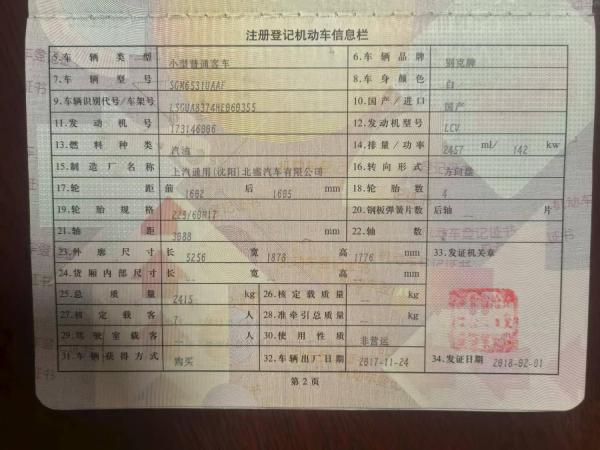 注册登记机动车信息栏
5.车辆类型 小型普通客车 6.车辆品牌 别克牌
7.车辆型号 SGM6531UAAF 8.车身颜色 白
9.车辆识别代号/车架号 LSGUA8374HE060355 10.国产/进口 国产
11.发动机号 173146006 12.发动机型号 LCV
13.燃料种类 汽油 14.排量/功率 2457 ml/ 142 kw
15.制造厂名称 上汽通用(沈阳)北盛汽车有限公司 16.转向形式 方向盘
17.轮距 前 1602 后 1605 mm 18.轮胎数 4
19.轮胎规格 225/60R17 20.钢板弹簧片数 后轴 -- 片
21.轴距 3088 mm 22.轴数 2
23.外廓尺寸 长 5256 宽 1878 高 1776 mm 33.发证机关章
24.货厢内部尺寸 长 -- 宽 -- 高 -- mm
25.总质量 2415 kg 26.核定载质量 -- kg
27.核定载客 7 人 28.准牵引总质量 -- kg
29.驾驶室载客 -- 人 30.使用性质 非营运
31.车辆获得方式 购买 32.车辆出厂日期 2017-11-24 34.发证日期 2018-02-01
第2页